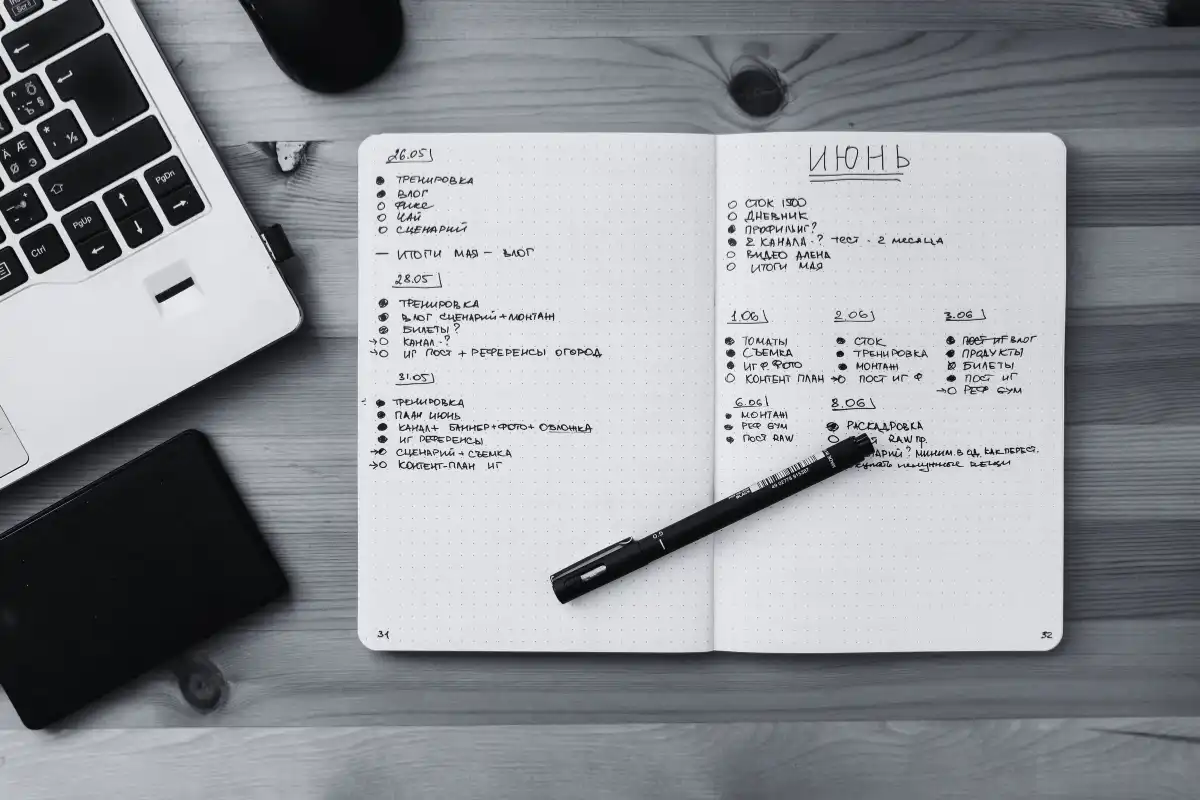 26.05
ТРЕНИРОВКА
ВЛОГ
ФИКС
ЧАЙ
СЦЕНАРИЙ
— ИТОГИ МАЯ — ВЛОГ
28.05
ТРЕНИРОВКА
ВЛОГ СЦЕНАРИЙ+МОНТАЖ
БИЛЕТЫ?
КАНАЛ-?
ИГ ПОСТ + РЕФЕРЕНСЫ ОГОРОД
31.05
ТРЕНИРОВКА
ПЛАН ИЮНЬ
КАНАЛ+ БАННЕР+ФОТО+ ОБЛОЖКА
ИГ РЕФЕРЕНСЫ
СЦЕНАРИЙ + СЪЕМКА
КОНТЕНТ-ПЛАН ИГ
31
ИЮНЬ
СТОК 1500
ДНЕВНИК
ПРОФИЛЬ ИГ?
2 КАНАЛА-? ТЕСТ - 2 МЕСЯЦА
ВИДЕО АЛЕНА
ИТОГИ МАЯ
1.06
ТОМАТЫ
СЪЕМКА
ИГ Ф. ФОТО
КОНТЕНТ ПЛАН
2.06
СТОК
ТРЕНИРОВКА
МОНТАЖ
ПОСТ ИГ Ф
3.06
ПОСТ ИГ ВЛОГ
ПРОДУКТЫ
БИЛЕТЫ
ПОСТ ИГ
РЕФ БУМ
6.06
МОНТАЖ
РЕФ БУМ
ПОСТ RAW
8.06
РАСКАДРОВКА
RAW ПР.
МИНИМ. В ОД. КАК ПЕРЕСТ.
ненужные вещи
32
0.5
BLACK
Ctrl
PgUp
PgDn